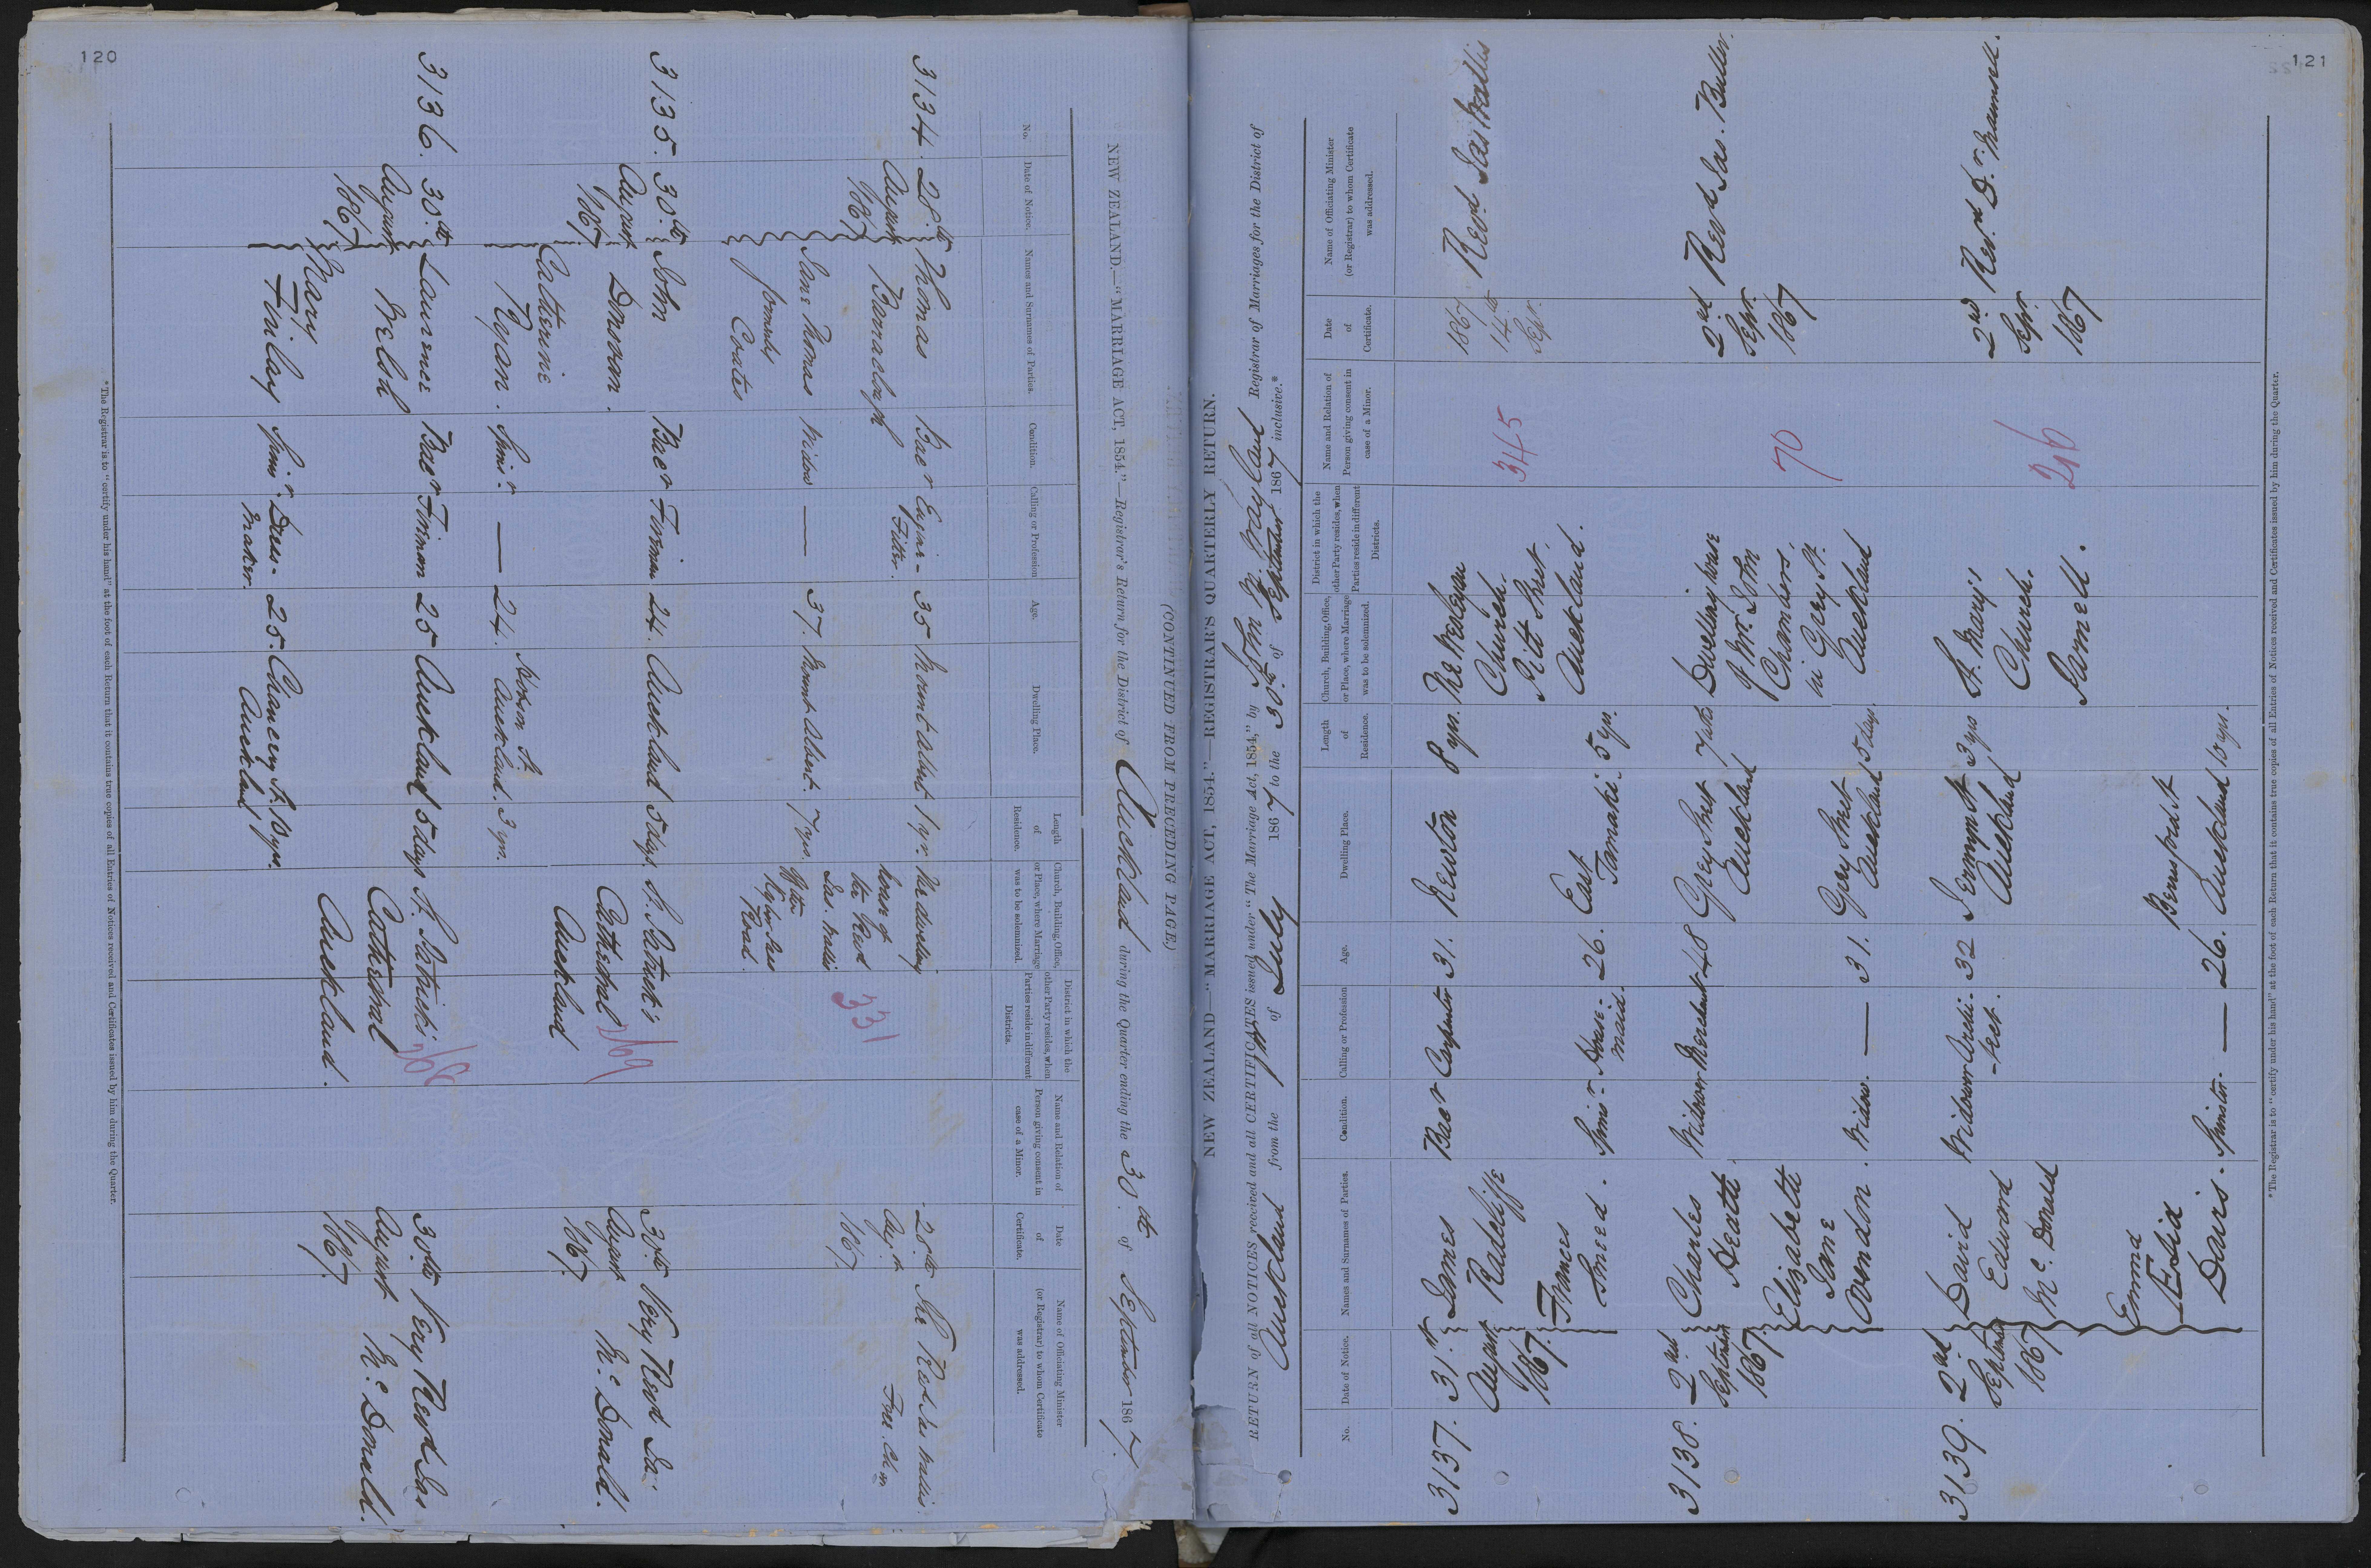 120
NEW ZEALAND.—"MARRIAGE ACT, 1854."—Registrar's Return for the District of Auckland during the Quarter ending the 30th of September 1867.
(CONTINUED FROM PRECEDING PAGE.)
No.
Date of Notice.
Names and Surnames of Parties.
Condition.
Calling or Profession
Age.
Dwelling Place.
Length
of
Residence.
Church, Building, Office,
or Place, where Marriage
was to be solemnized.
District in which the
other Party resides, when
Parties reside in different
Districts.
Name and Relation of
Person giving consent in
case of a Minor.
Date
of
Certificate.
Name of Officiating Minister
(or Registrar) to whom Certificate
was addressed.
3134. 28th
August
1867
Thomas
Barraclough
Bacr
Engine-
Fitter.
35
Mount Albert
1 yr.
The dwelling
house of
the Revd
Jas. Wallis
off the
Kyber Pass
Road.
331
28th
Augst
1867.
The Revd Jas Wallis
Free. Ch
Jane Thomas
formerly
Coates
Widow
—
37.
Mount Albert.
7 yrs.
3135. 30th
August
1867
John
Donovan.
Bacr
Fireman
24.
Auckland
5 days.
St. Patrick's
Cathedral
Auckland
269
30th
August
1867.
Very Revd Ja:
McDonald.
Catherine
Ryan.
Spinr.
—
24.
Hobson St.
Auckland.
3 yrs.
3136. 30th
August
1867
Laurence
Welsh
Bacr
Fireman
25
Auckland
5 days
St. Patrick's
Cathedral
Auckland.
30th
August
1867.
Very Revd Jas
McDonald.
Mary
Finlay
Spinr.
Dress-
maker.
25.
Chancery St.
Auckland
10 yrs.
*The Registrar is to "certify under his hand" at the foot of each Return that it contains true copies of all Entries of Notices received and Certificates issued by him during the Quarter.
121
NEW ZEALAND—"MARRIAGE ACT, 1854."—REGISTRAR'S QUARTERLY RETURN.
RETURN of all NOTICES received and all CERTIFICATES issued under "The Marriage Act, 1854," by John B. Wayland Registrar of Marriages for the District of
Auckland from the 1st of July 1867 to the 30th of September 1867 inclusive.*
No.
Date of Notice.
Names and Surnames of Parties.
Condition.
Calling or Profession
Age.
Dwelling Place.
Length
of
Residence.
Church, Building, Office,
or Place, where Marriage
was to be solemnized.
District in which the
other Party resides, when
Parties reside in different
Districts.
Name and Relation of
Person giving consent in
case of a Minor.
Date
of
Certificate.
Name of Officiating Minister
(or Registrar) to whom Certificate
was addressed.
3137. 31st
August
1867.
James
Radcliffe
Bacr
Carpenter
31.
Newton
8 yrs.
The Wesleyan
Church.
Pitt Street.
Auckland.
345
1867
14th
Sepr.
Revd. Jas Wallis
Frances
Sneed.
Spinsr
House-
maid.
26.
East
Tamaki.
5 yrs.
3138. 2nd
September
1867.
Charles
Heath
Widower
Merchant
48
Grey Street
Auckland
7 wks
Dwelling house
of Mr. John
Chambers.
in Grey St.
Auckland
70
2nd
Sepr.
1867
Revd Jas. Buller.
Elizabeth
Jane
Ovendon.
Widow.
—
31.
Grey Street
Auckland
5 days.
3139. 2nd
September
1867
David
Edward
McDonald
Widower
Archi-
tect.
32
Jermyn St
Auckland
3 yrs
St. Mary's
Church.
Parnell.
216
2nd
Sepr.
1867
Revd. Dr. Maunsell.
Emma
Davis.
Spinster.
—
26.
Beresford St
Auckland
10 yrs.
*The Registrar is to "certify under his hand" at the foot of each Return that it contains true copies of all Entries of Notices received and Certificates issued by him during the Quarter.